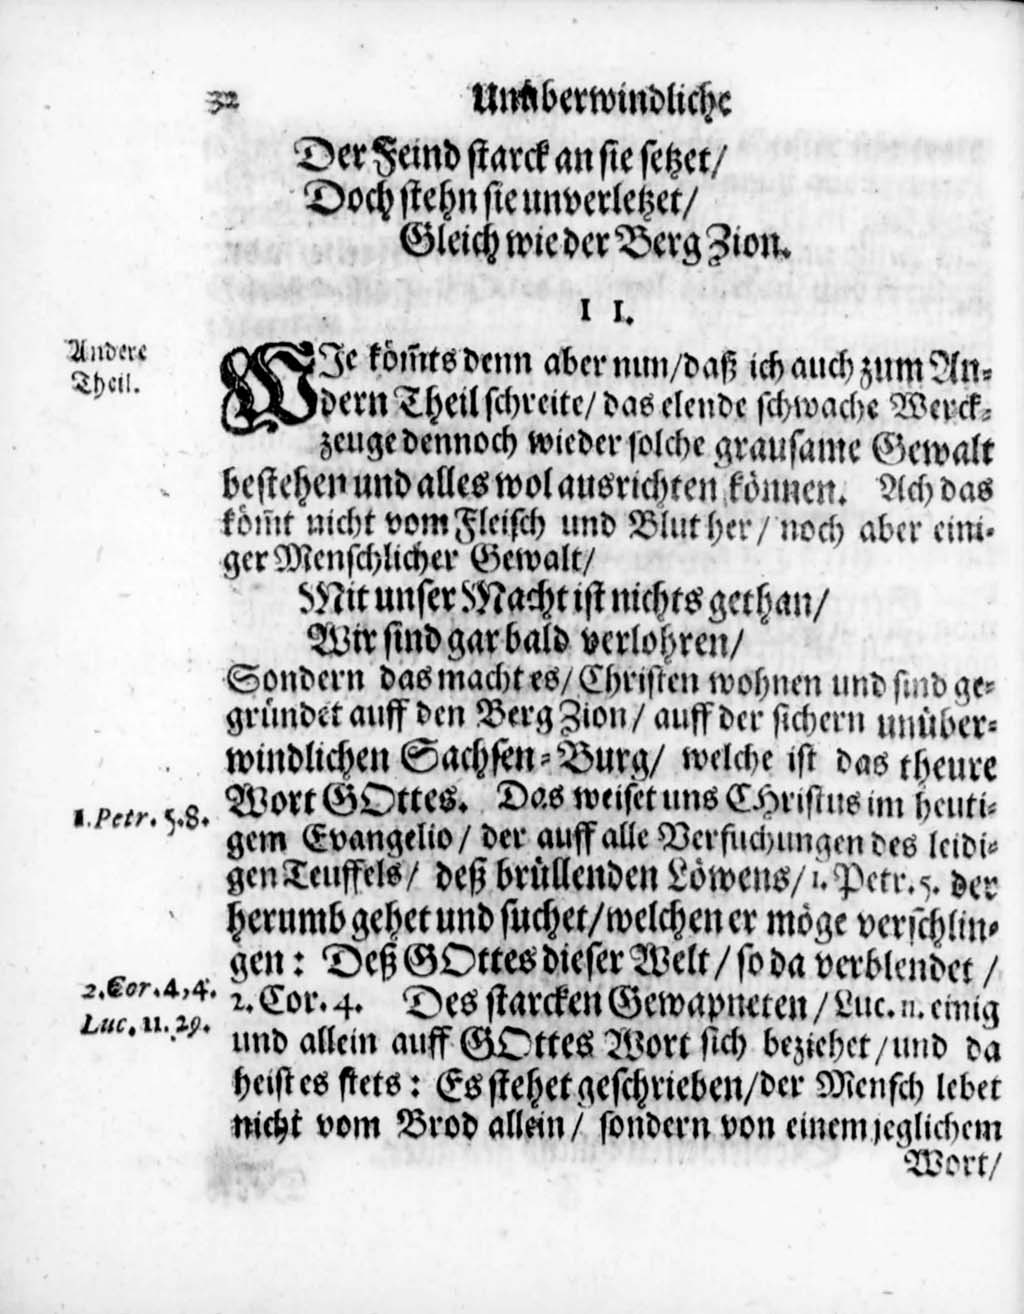 32 Unüberwindliche
Der Feind starck an sie setzet/
Doch stehn sie unverletzet/
Gleich wie der Berg Zion.
I I.
Andere
Theil.
WJe köm̃ts denn aber nun/daß ich auch zum An-
dern Theil schreite/ das elende schwache Werck-
zeuge dennoch wieder solche grausame Gewalt
bestehen und alles wol ausrichten können. Ach das
köm̃t nicht vom Fleisch und Blut her/ noch aber eini-
ger Menschlicher Gewalt/
Mit unser Macht ist nichts gethan/
Wir sind gar bald verlohren/
Sondern das macht es/ Christen wohnen und sind ge-
gründet auff den Berg Zion/ auff der sichern unüber-
windlichen Sachsen-Burg/ welche ist das theure
Wort GOttes. Das weiset uns CHristus im heuti-
1.Petr. 5.8.
gem Evangelio/ der auff alle Versuchungen des leidi-
gen Teuffels/ deß brüllenden Löwens/ 1. Petr. 5. der
herumb gehet und suchet/welchen er möge verschlin-
gen: Deß GOttes dieser Welt/ so da verblendet/
2.Cor.4,4.
2. Cor. 4. Des starcken Gewapneten/ Luc. 11. einig
Luc. 11. 29.
und allein auff GOttes Wort sich beziehet/und da
heist es stets: Es stehet geschrieben/der Mensch lebet
nicht vom Brod allein/ sondern von einem jeglichem
Wort/